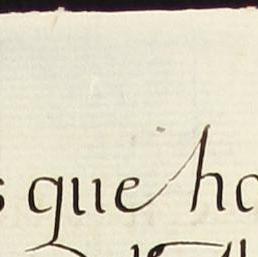 s que ha